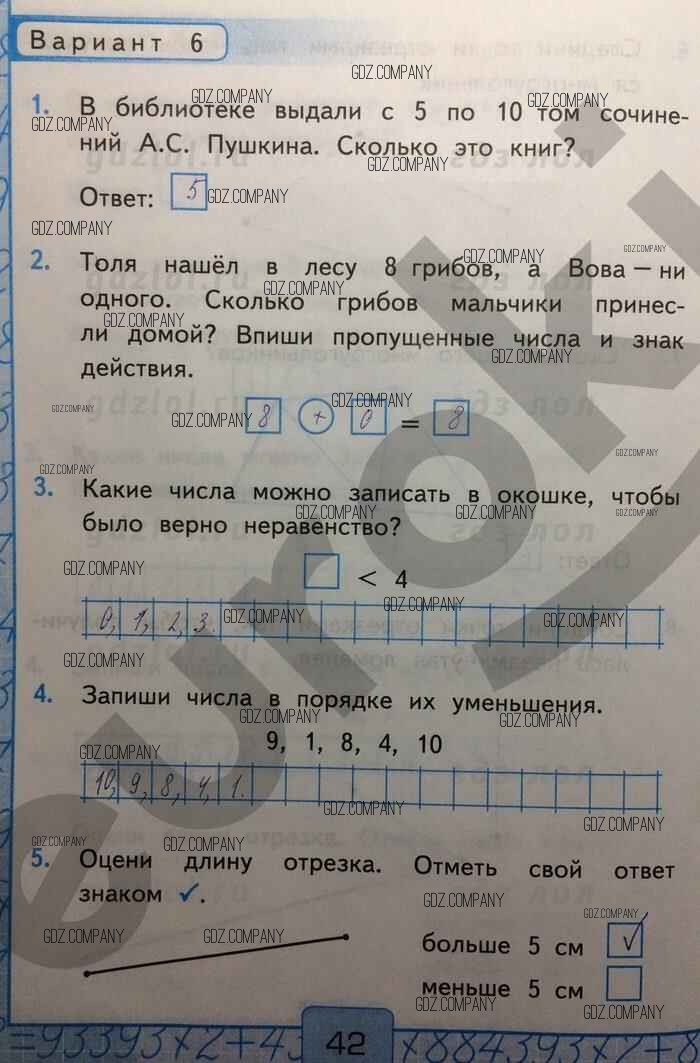 Вариант 6
1. В библиотеке выдали с 5 по 10 том сочине-
ний А.С. Пушкина. Сколько это книг?
Ответ: 5
2. Толя нашёл в лесу 8 грибов, а Вова — ни
одного. Сколько грибов мальчики принес-
ли домой? Впиши пропущенные числа и знак
действия.
8 + 0 = 8
3. Какие числа можно записать в окошке, чтобы
было верно неравенство?
< 4
0, 1, 2, 3.
4. Запиши числа в порядке их уменьшения.
9, 1, 8, 4, 10
10, 9, 8, 4, 1.
5. Оцени длину отрезка. Отметь свой ответ
знаком ✓.
больше 5 см ✓
меньше 5 см
42
GDZ.COMPANY
euroki